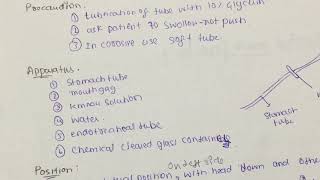 Proccaudion.
① Lubrication of tube with 10% Glycerin
② ask patient to swollow-not push
③ In corrosive use soft tube.
Apparatus.
① Stomach tube
② mouth gag
③ kmno4 solution
④ water
⑤ endotracheal tube
⑥ Chemical cleaned glass containers
Stomach
tube
Position:
On left side
position, with head down and othe